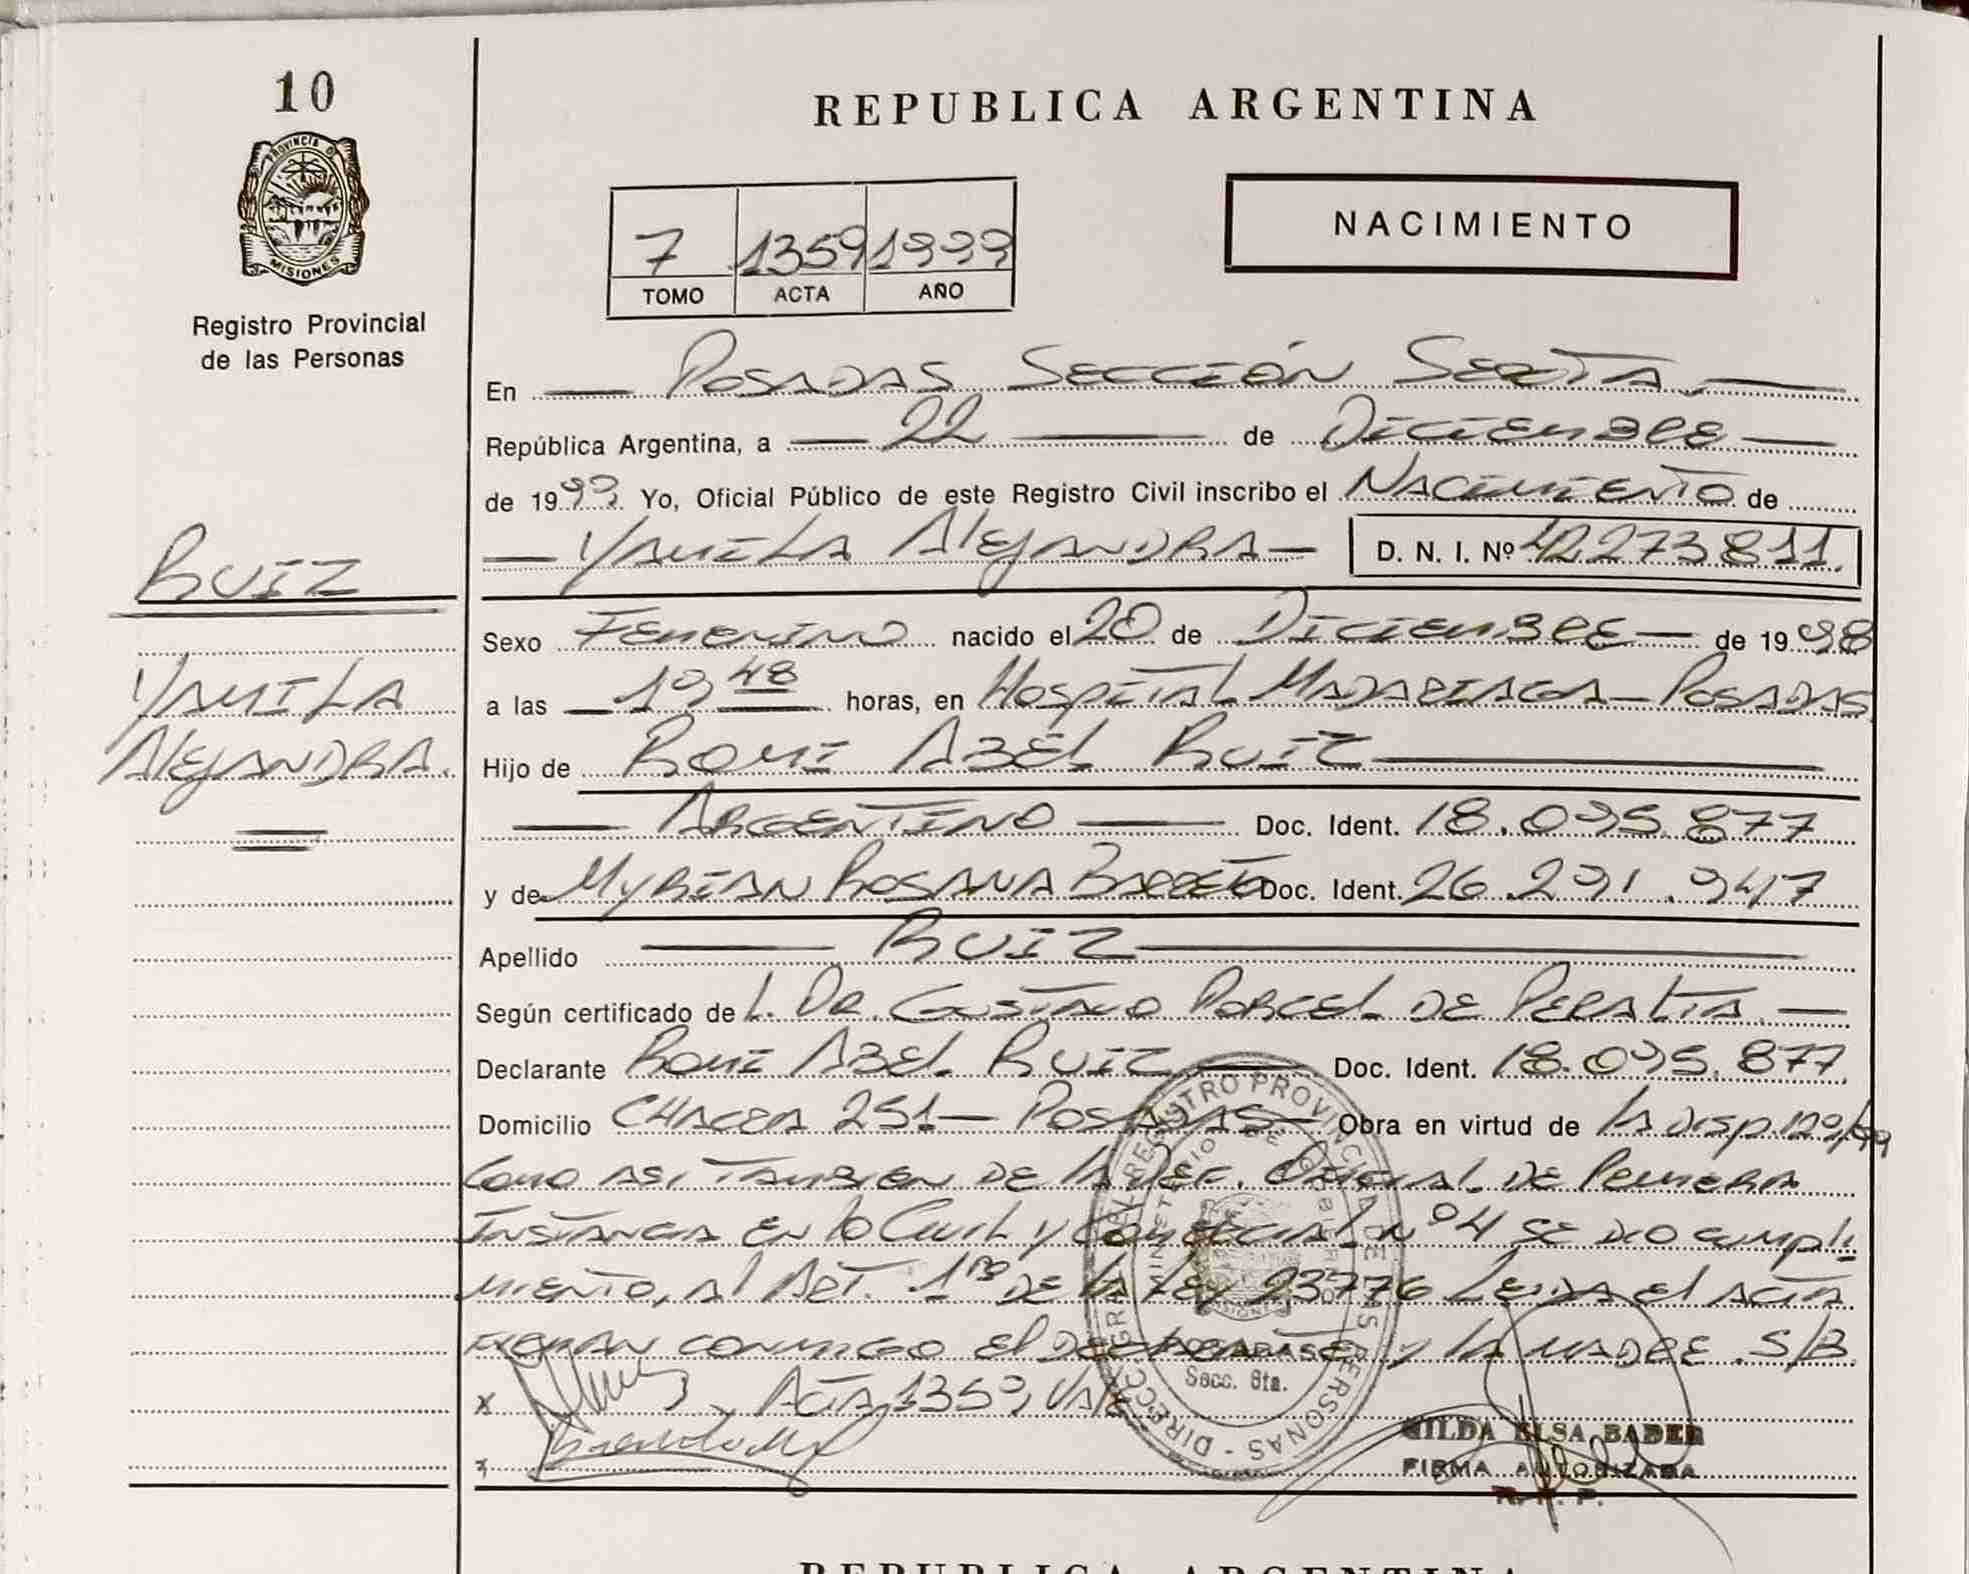 10
PROVINCIA DE
MISIONES
Registro Provincial
de las Personas
REPUBLICA ARGENTINA
NACIMIENTO
7 1359 1999
TOMO ACTA AÑO
En POSADAS SECCIÓN SEXTA
República Argentina, a 22 de DICIEMBRE
de 1999 Yo, Oficial Público de este Registro Civil inscribo el NACIMIENTO de
YAMILA ALEJANDRA D. N. I. Nº 42273811.
RUIZ
YAMILA
ALEJANDRA.
Sexo FEMENINO nacido el 20 de DICIEMBRE de 1998
a las 19,48 horas, en HOSPITAL MADARIAGA - POSADAS
Hijo de ROMI ABEL RUIZ
ARGENTINO Doc. Ident. 18.095.877
y de MYRIAN ROSANA BARRETO Doc. Ident. 26.291.947
Apellido RUIZ
Según certificado de L. DR. GUSTAVO PORCEL DE PERALTA
Declarante ROMI ABEL RUIZ Doc. Ident. 18.095.877
Domicilio CHACRA 251 - POSADAS Obra en virtud de LA DISP. 129/99
COMO ASI TAMBIEN DE LA DEF. OFICIAL DE PRIMERA
INSTANCIA EN LO CIVIL Y COMERCIAL Nº 4 SE DIO CUMPLI
MIENTO, AL ART. 1ro DE LA LEY 23776 LEIDA EL ACTA
FIRMAN CONMIGO EL DECLARANTE Y LA MADRE. S/B.
x ACTA, 1359, VALE
DIRECC. GRAL. REGISTRO PROVINCIAL DE LAS PERSONAS
MINISTERIO DE GOBIERNO
MISIONES
POSADAS
Secc. 6ta.
GILDA ELSA BADER
FIRMA AUTORIZADA
R. P. P.
REPUBLICA ARGENTINA